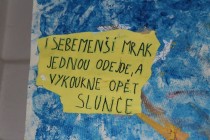 I SEBEMENŠÍ MRAK
JEDNOU ODEJDE, A
VYKOUKNE OPĚT
SLUNCE